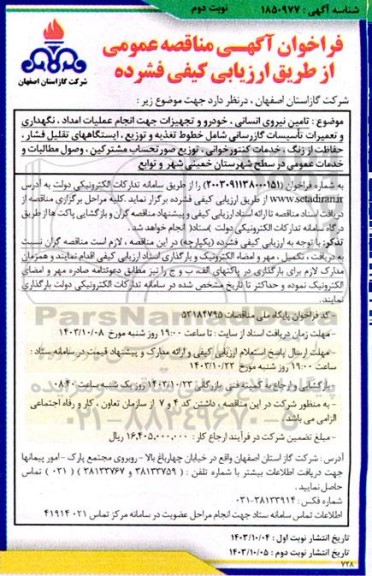 شناسه آگهی : ۱۸۵۰۹۷۷
نوبت دوم
فراخوان آگهی مناقصه عمومی
از طریق ارزیابی کیفی فشرده
شرکت گاز استان اصفهان
شرکت گاز استان اصفهان ، در نظر دارد جهت موضوع زیر :
موضوع : تامین نیروی انسانی ، خودرو و تجهیزات جهت انجام عملیات امداد ، نگهداری
و تعمیرات تأسیسات گازرسانی شامل خطوط تغذیه و توزیع ، ایستگاههای تقلیل فشار ،
حفاظت از زنگ ، خدمات کنتورخوانی ، توزیع صورتحساب مشترکین ، وصول مطالبات و
خدمات عمومی در سطح شهرستان خمینی شهر و توابع
به شماره فراخوان (۲۰۰۳۰۹۱۱۳۸۰۰۰۱۵۱) را از طریق سامانه تدارکات الکترونیکی دولت به آدرس
www.setadiran.ir از طریق ارزیابی کیفی فشرده برگزار نماید. کلیه مراحل برگزاری مناقصه از
دریافت اسناد مناقصه تا ارائه اسناد ارزیابی کیفی و پیشنهاد مناقصه گران و بازگشایی پاکت ها از طریق
درگاه سامانه تدارکات الکترونیکی دولت (ستاد) انجام خواهد شد.
تذکر: با توجه به ارزیابی کیفی فشرده (یکپارچه) در این مناقصه ، لازم است مناقصه گران نسبت
به دریافت ، تکمیل ، مهر و امضاء الکترونیک و بارگذاری اسناد ارزیابی کیفی اقدام نمایند و همزمان
مدارک لازم برای بارگذاری در پاکتهای الف، ب و ج را نیز مطابق دعوتنامه صادره مهر و امضای
الکترونیک نموده و حداکثر تا تاریخ مشخص شده در سامانه تدارکات الکترونیکی دولت بارگذاری
نمایند.
- کد فراخوان پایگاه ملی مناقصات ۵۳۱۸۴۷۹۵
- مهلت زمان دریافت اسناد از سایت : تا ساعت ۱۹:۰۰ روز شنبه مورخ ۱۴۰۳/۱۰/۰۸
- مهلت ارسال پاسخ استعلام ارزیابی کیفی و ارائه مدارک و پیشنهاد قیمت در سامانه ستاد :
ساعت ۱۹:۰۰ روز شنبه مورخ ۱۴۰۳/۱۰/۲۲
- بازگشایی و ارجاع به کمیته فنی بازرگانی ۱۴۰۳/۱۰/۲۳ روز یک شنبه ساعت ۰۸:۴۰
- به منظور شرکت در این مناقصه ، داشتن کد ۴ و ۷ از سازمان تعاون ، کار و رفاه اجتماعی
الزامی می باشد.
- مبلغ تضمین شرکت در فرآیند ارجاع کار : ۱۶,۴۰۵,۰۰۰,۰۰۰ ریال
آدرس : شرکت گاز استان اصفهان واقع در خیابان چهارباغ بالا - روبروی مجتمع پارک - امور پیمانها
جهت دریافت اطلاعات بیشتر با شماره تلفن : ( ۳۸۱۳۳۷۵۹ / ۳۸۱۳۳۷۶۷ ) ( ۰۳۱ ) تماس
حاصل نمایید.
شماره فکس : ۳۸۱۳۳۹۱۴-۰۳۱
اطلاعات تماس سامانه ستاد جهت انجام مراحل عضویت در سامانه مرکز تماس ۰۲۱ ۴۱۹۱۴
تاریخ انتشار نوبت اول : ۱۴۰۳/۱۰/۰۴
تاریخ انتشار نوبت دوم : ۱۴۰۳/۱۰/۰۵
۷۲۸